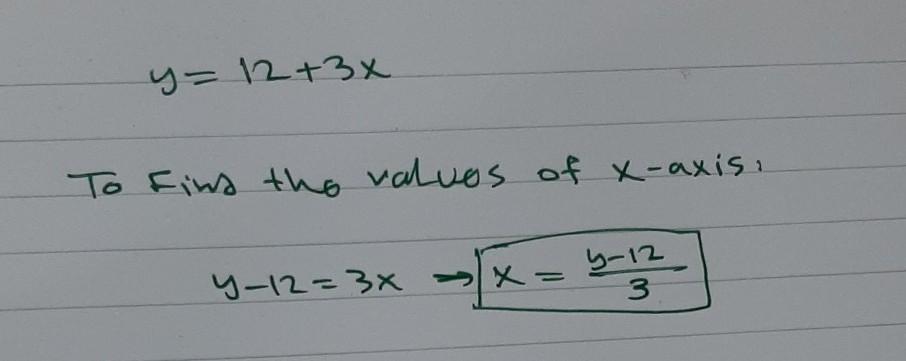 y = 12 + 3x
To Find the values of x-axis:
y - 12 = 3x → x = y-12/3